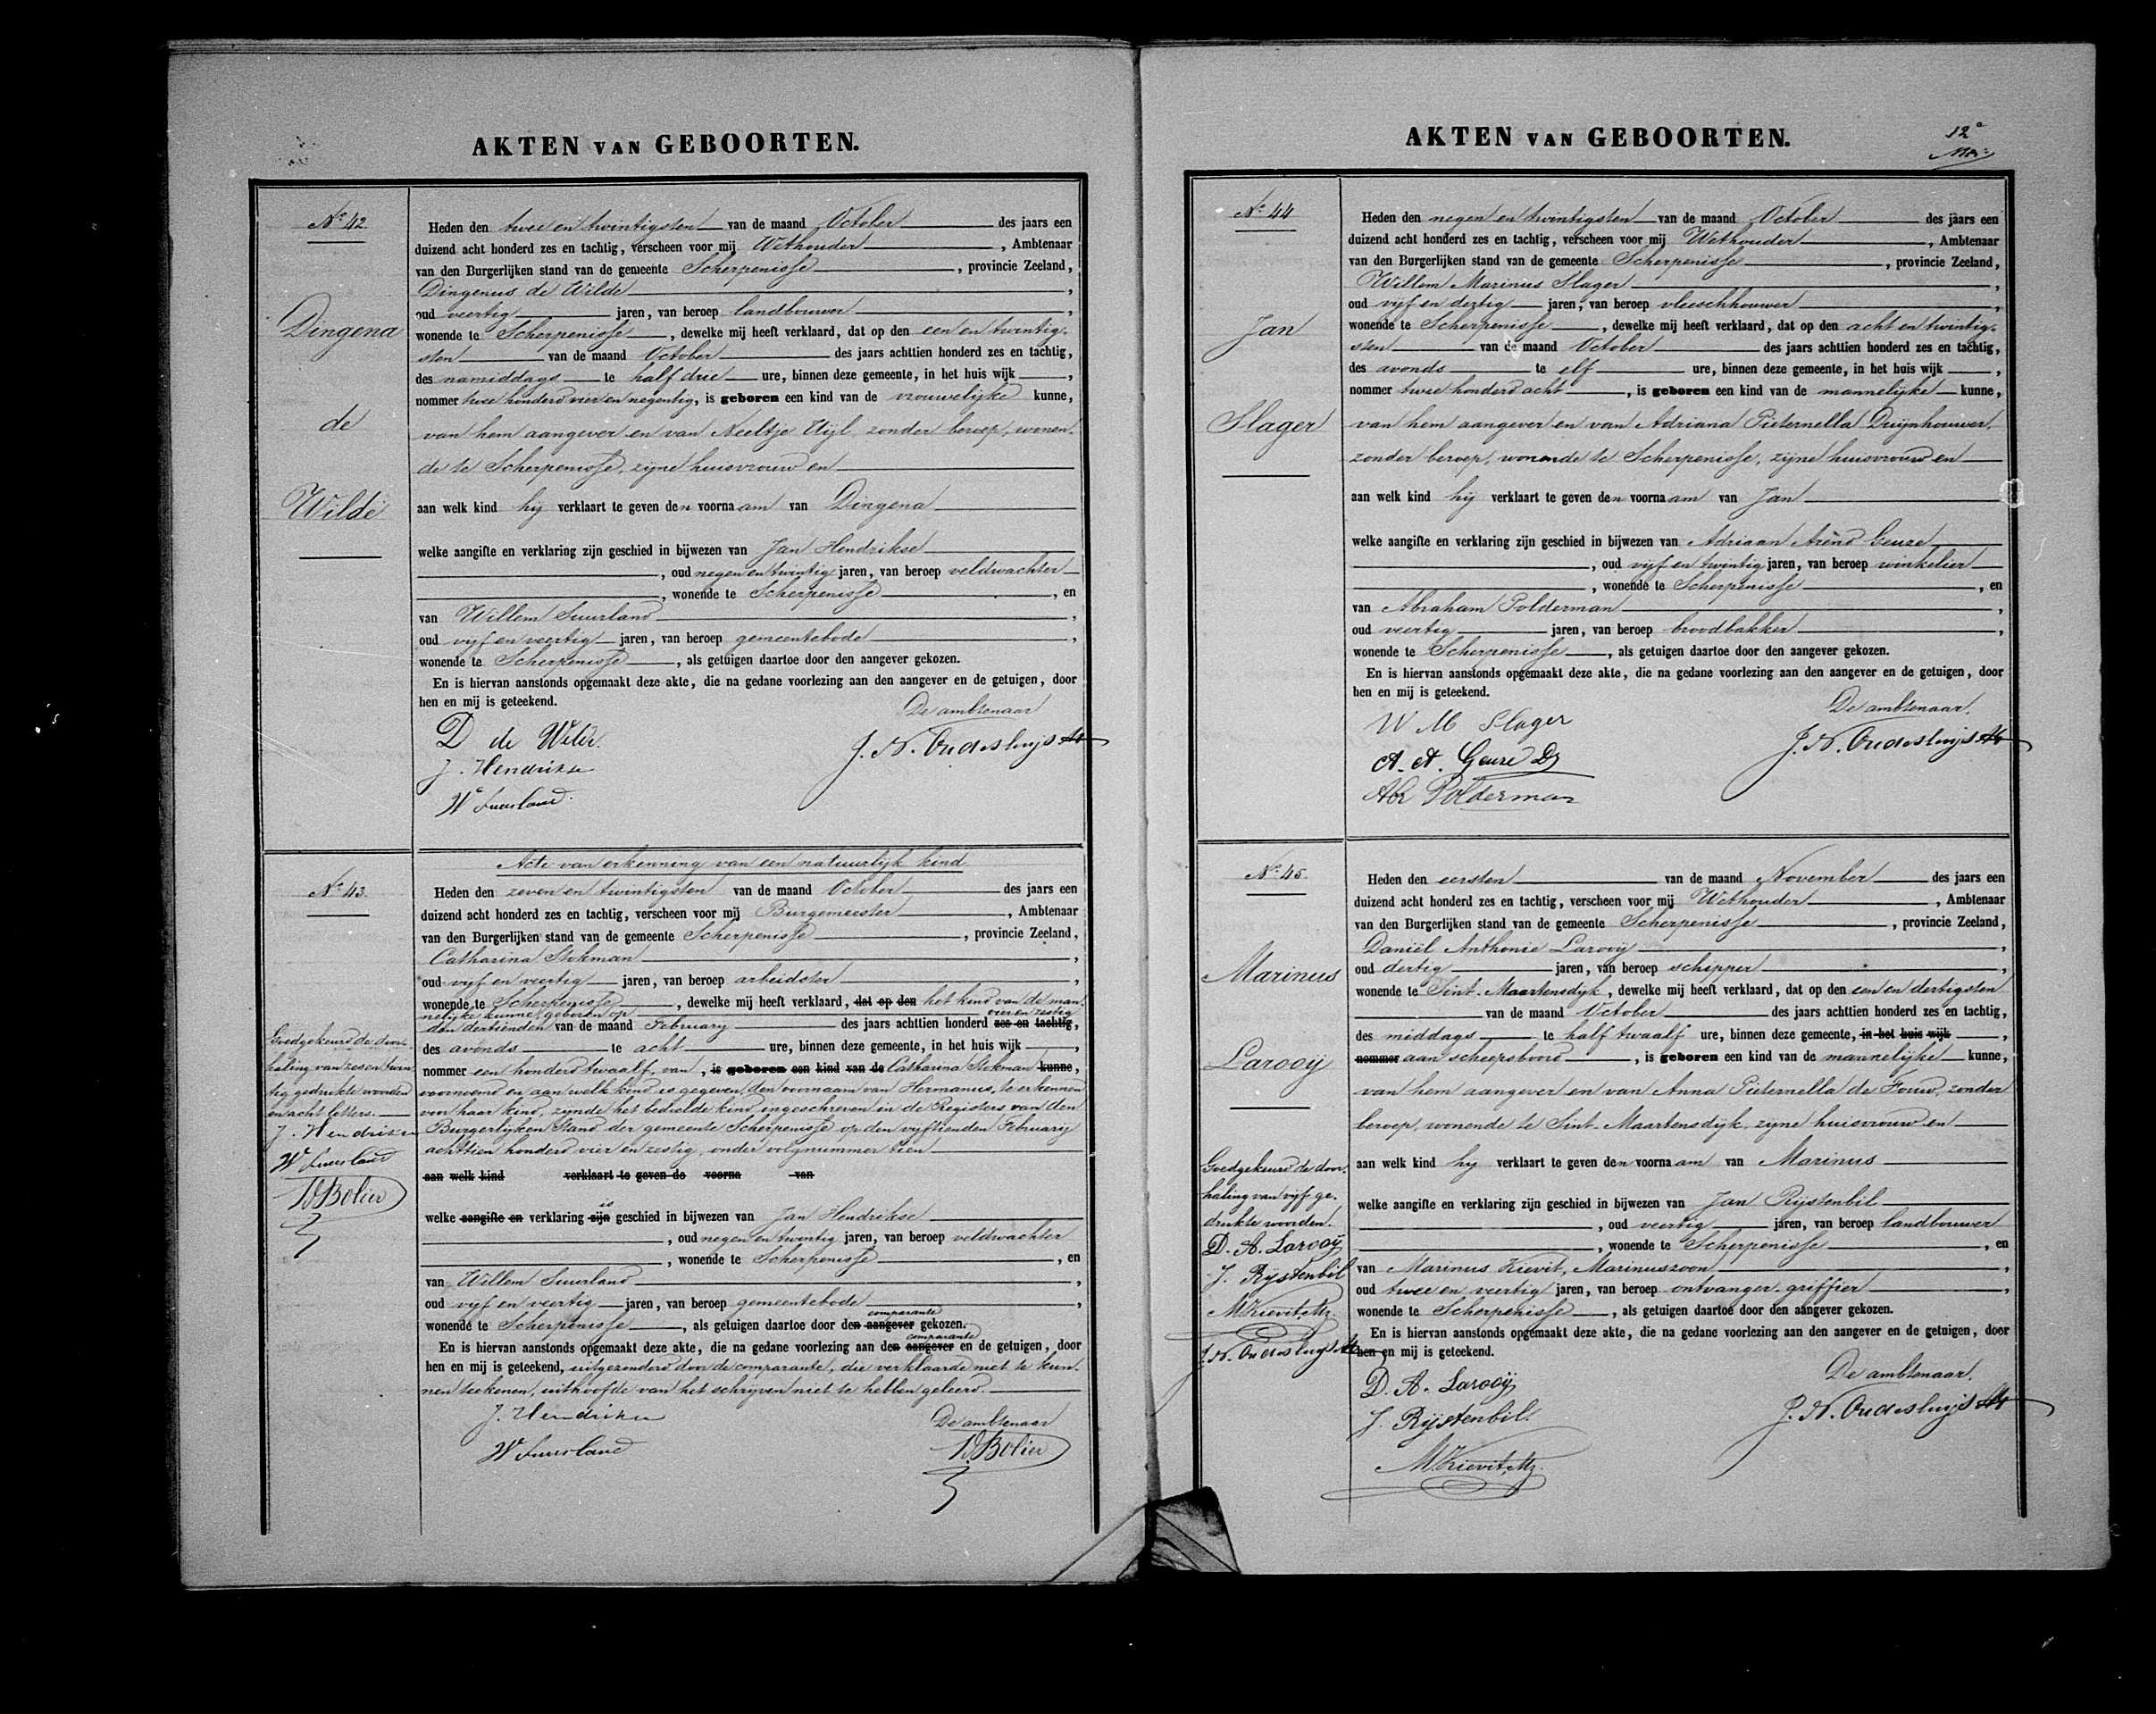 AKTEN VAN GEBOORTEN.
Nº 42
Dingena
de
Wilde
Heden den twee en twintigsten van de maand October des jaars een
duizend acht honderd zes en tachtig, verscheen voor mij Wethouder, Ambtenaar
van den Burgerlijken stand van de gemeente Scherpenisse, provincie Zeeland,
Dingenus de Wilde,
oud veertig jaren, van beroep landbouwer,
wonende te Scherpenisse, dewelke mij heeft verklaard, dat op den een en twintig-
sten van de maand October des jaars achttien honderd zes en tachtig,
des namiddags te half drie ure, binnen deze gemeente, in het huis wijk,
nommer twee honderd vier en negentig, is geboren een kind van de vrouwelijke kunne,
van hem aangever en van Neeltje Uijl, zonder beroep, wonen-
de te Scherpenisse, zijne huisvrouw en
aan welk kind hij verklaart te geven den voornaam van Dingena
welke aangifte en verklaring zijn geschied in bijwezen van Jan Hendrikse
, oud negen en twintig jaren, van beroep veldwachter
, wonende te Scherpenisse, en
van Willem Suurland,
oud vijf en veertig jaren, van beroep gemeentebode,
wonende te Scherpenisse, als getuigen daartoe door den aangever gekozen.
En is hiervan aanstonds opgemaakt deze akte, die na gedane voorlezing aan den aangever en de getuigen, door
hen en mij is geteekend.
De ambtenaar
D de Wilde.
J. N. Oudesluijs
J. Hendrikse
W Suurland.
Nº 43.
Goedgekeurd de door-
haling van zes en twin-
tig gedrukte woorden
en acht letters.
J. Hendrikse
W Suurland
Bolier
Acte van erkenning van een natuurlijk kind
Heden den zeven en twintigsten van de maand October des jaars een
duizend acht honderd zes en tachtig, verscheen voor mij Burgemeester, Ambtenaar
van den Burgerlijken stand van de gemeente Scherpenisse, provincie Zeeland,
Catharina Stokman,
oud vijf en veertig jaren, van beroep arbeidster,
wonende te Scherpenisse, dewelke mij heeft verklaard, dat op den het kind van de man-
nelijke kunne, geboren op vier en zestig
den dertienden van de maand February des jaars achttien honderd zes en tachtig,
des avonds te acht ure, binnen deze gemeente, in het huis wijk,
nommer een honderd twaalf, van, is geboren een kind van de Catharina Stokman kunne,
voornoemd en aan welk kind is gegeven den voornaam van Hermanus, te erkennen
voor haar kind, zijnde het bedoelde kind ingeschreven in de Registers van den
Burgerlijken Stand der gemeente Scherpenisse op den vijftienden Februarij
achttien honderd vier en zestig, onder volgnummer tien
aan welk kind verklaart te geven de voorna van
is
welke aangifte en verklaring zijn geschied in bijwezen van Jan Hendrikse
, oud negen en twintig jaren, van beroep veldwachter
, wonende te Scherpenisse, en
van Willem Suurland,
oud vijf en veertig jaren, van beroep gemeentebode,
comparante
wonende te Scherpenisse, als getuigen daartoe door den aangever gekozen.
comparante
En is hiervan aanstonds opgemaakt deze akte, die na gedane voorlezing aan den aangever en de getuigen, door
hen en mij is geteekend, uitgezonderd door de comparante, die verklaarde niet te kun-
nen teekenen, uithoofde van het schrijven niet te hebben geleerd.
J. Hendrikse
De ambtenaar
W Suurland
Bolier
AKTEN VAN GEBOORTEN.
12e
Nº 44
Jan
Slager
Heden den negen en twintigsten van de maand October des jaars een
duizend acht honderd zes en tachtig, verscheen voor mij Wethouder, Ambtenaar
van den Burgerlijken stand van de gemeente Scherpenisse, provincie Zeeland,
Willem Marinus Slager,
oud vijf en dertig jaren, van beroep vleeschhouwer,
wonende te Scherpenisse, dewelke mij heeft verklaard, dat op den acht en twintig-
sten van de maand October des jaars achttien honderd zes en tachtig,
des avonds te elf ure, binnen deze gemeente, in het huis wijk,
nommer twee honderd acht, is geboren een kind van de mannelijke kunne,
van hem aangever en van Adriana Pieternella Duijnhouwer,
zonder beroep, wonende te Scherpenisse, zijne huisvrouw en
aan welk kind hij verklaart te geven den voornaam van Jan
welke aangifte en verklaring zijn geschied in bijwezen van Adriaan Arend Geuze
, oud vijf en twintig jaren, van beroep winkelier
, wonende te Scherpenisse, en
van Abraham Polderman,
oud veertig jaren, van beroep broodbakker,
wonende te Scherpenisse, als getuigen daartoe door den aangever gekozen.
En is hiervan aanstonds opgemaakt deze akte, die na gedane voorlezing aan den aangever en de getuigen, door
hen en mij is geteekend.
De ambtenaar.
W M Slager
J. N. Oudesluijs
A. A. Geuze
Abr Polderman
Nº 45.
Marinus
Larooij
Goedgekeurd de door-
haling van vijf ge-
drukte woorden.
D. A. Larooij
J. Rijstenbil
M Kievit, Mz.
J. N. Oudesluijs
Heden den eersten van de maand November des jaars een
duizend acht honderd zes en tachtig, verscheen voor mij Wethouder, Ambtenaar
van den Burgerlijken stand van de gemeente Scherpenisse, provincie Zeeland,
Daniël Anthonie Larooij,
oud dertig jaren, van beroep schipper,
wonende te Sint-Maartensdijk, dewelke mij heeft verklaard, dat op den een en dertigsten
van de maand October des jaars achttien honderd zes en tachtig,
des middags te half twaalf ure, binnen deze gemeente, in het huis wijk,
nommer aan scheepsboord, is geboren een kind van de mannelijke kunne,
van hem aangever en van Anna Pieternella de Fouw, zonder
beroep, wonende te Sint-Maartensdijk, zijne huisvrouw en
aan welk kind hij verklaart te geven den voornaam van Marinus
welke aangifte en verklaring zijn geschied in bijwezen van Jan Rijstenbil
, oud veertig jaren, van beroep landbouwer
, wonende te Scherpenisse, en
van Marinus Kievit, Marinuszoon,
oud twee en veertig jaren, van beroep ontvanger-griffier,
wonende te Scherpenisse, als getuigen daartoe door den aangever gekozen.
En is hiervan aanstonds opgemaakt deze akte, die na gedane voorlezing aan den aangever en de getuigen, door
hen en mij is geteekend.
De ambtenaar.
D. A. Larooij
J. N. Oudesluijs
J. Rijstenbil.
M Kievit, Mz.